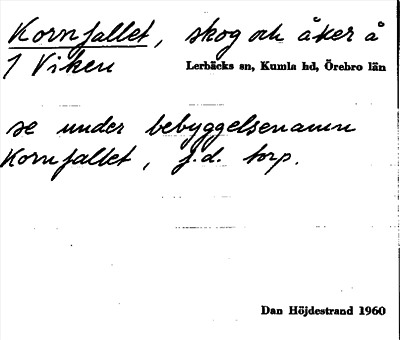 Kornfallet, skog och åker å
1 Viken
Lerbäcks sn, Kumla hd, Örebro län
se under bebyggelsenamn
Kornfallet, f.d. torp.
Dan Höjdestrand 1960